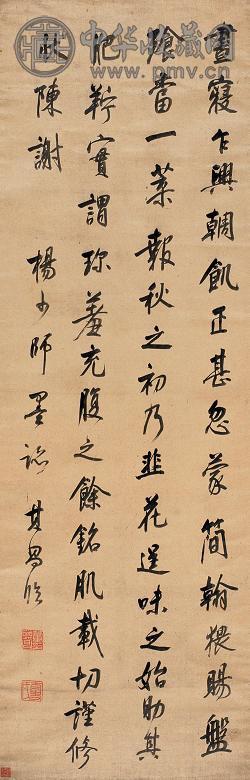 中华收藏网
www.pmv.cn
晝寢乍興輖飢正甚忽蒙簡翰猥賜盤
飧當一葉報秋之初乃韭花逞味之始助其
肥羜實謂珍羞充腹之餘銘肌載切謹修
狀陳謝 楊少師墨跡 其昌臨